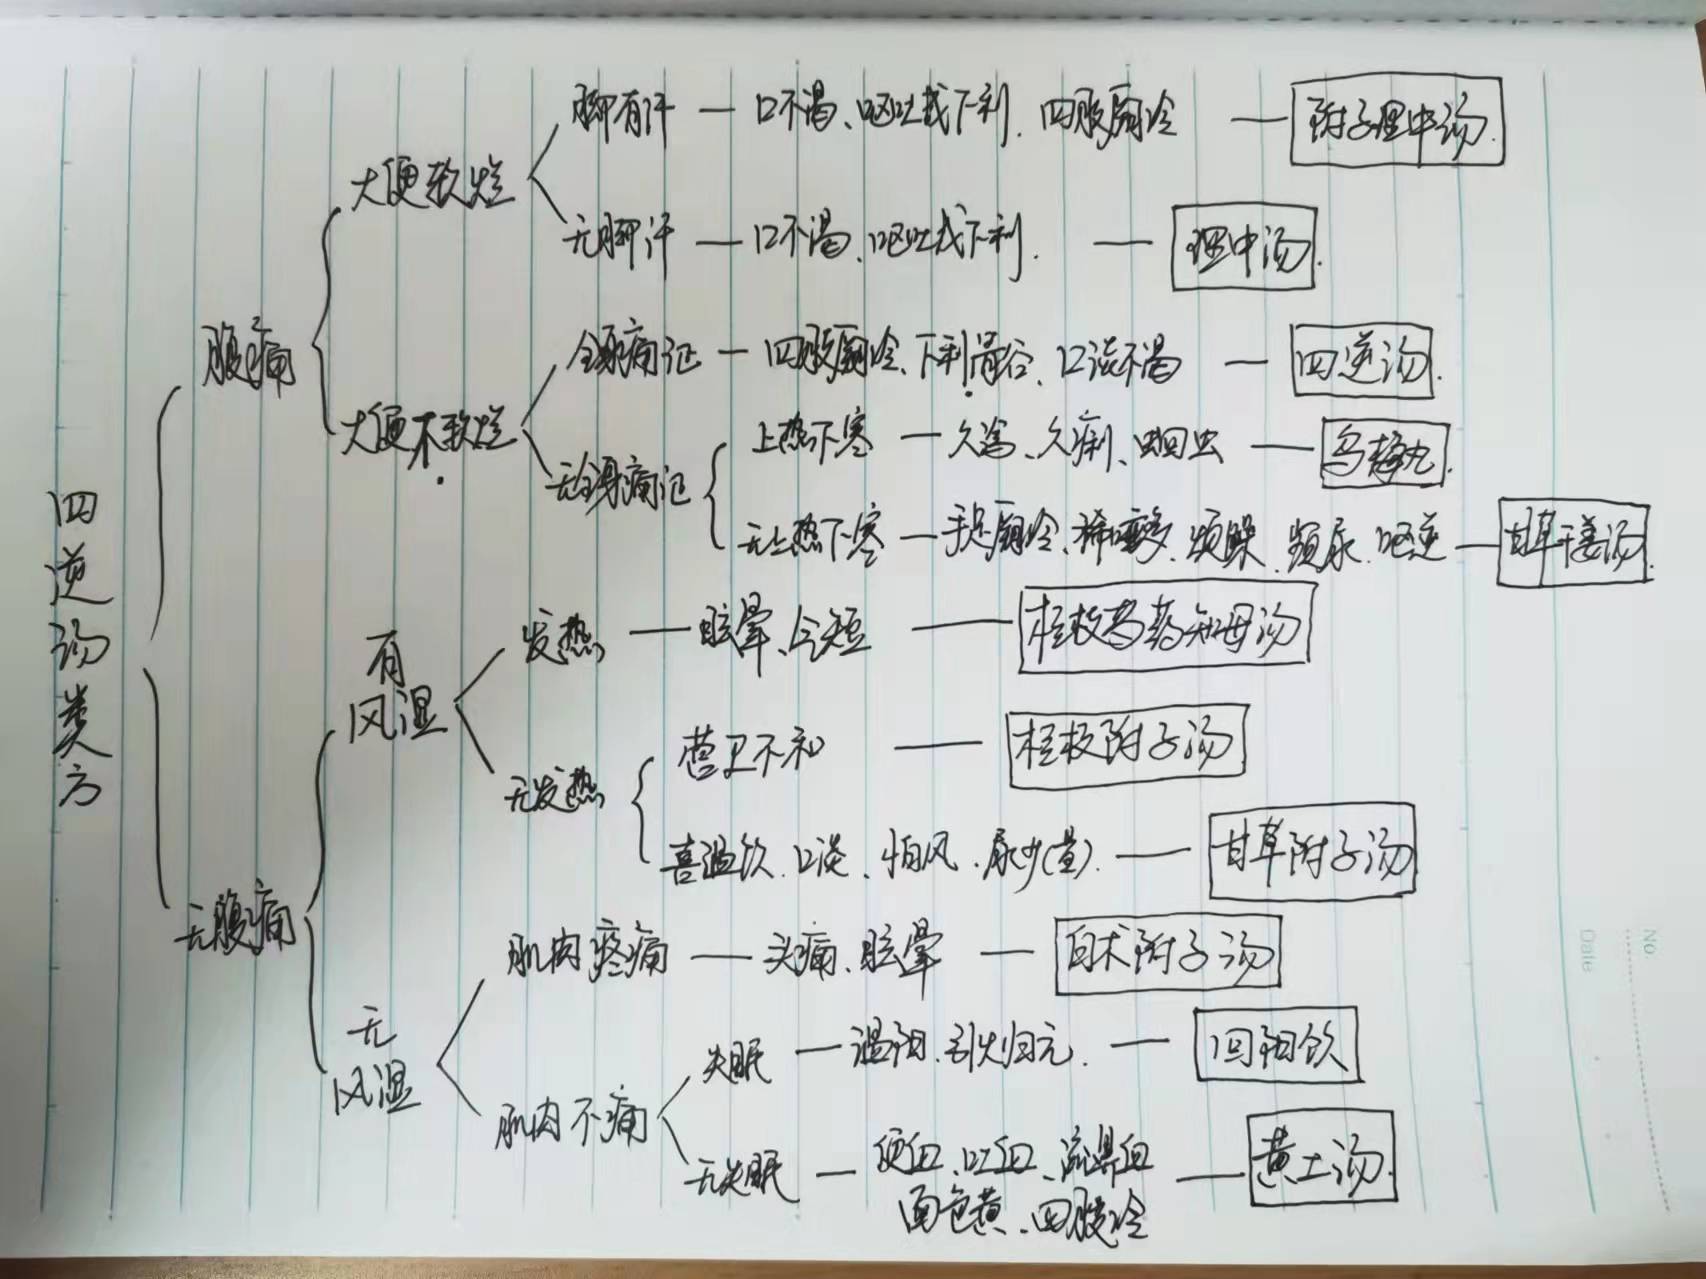 四逆汤类方
腹痛
大便软烂
脚有汗 — 口不渴、呕吐或下利、四肢厥冷 — 附子理中汤.
无脚汗 — 口不渴、呕吐或下利. — 理中汤.
大便不软烂
全身痛证 — 四肢厥冷、下利清谷、口淡不渴 — 四逆汤.
无全身痛证
上热下寒 — 久泻、久痢、蛔虫 — 乌梅丸.
无上热下寒 — 手足厥冷、稀唾多、烦躁、频尿、呃逆 — 甘草干姜汤.
无腹痛
有风湿
发热 — 眩晕、气短 — 桂枝芍药知母汤
无发热
营卫不和 — 桂枝附子汤
喜温饮、口淡、怕风、尿少(黄). — 甘草附子汤
无风湿
肌肉疼痛 — 头痛、眩晕 — 白术附子汤
肌肉不痛
失眠 — 温阳、引火归元. — 回阳饮
无失眠 — 便血、吐血、流鼻血
面色黄、四肢冷 — 黄土汤.
No.
Date